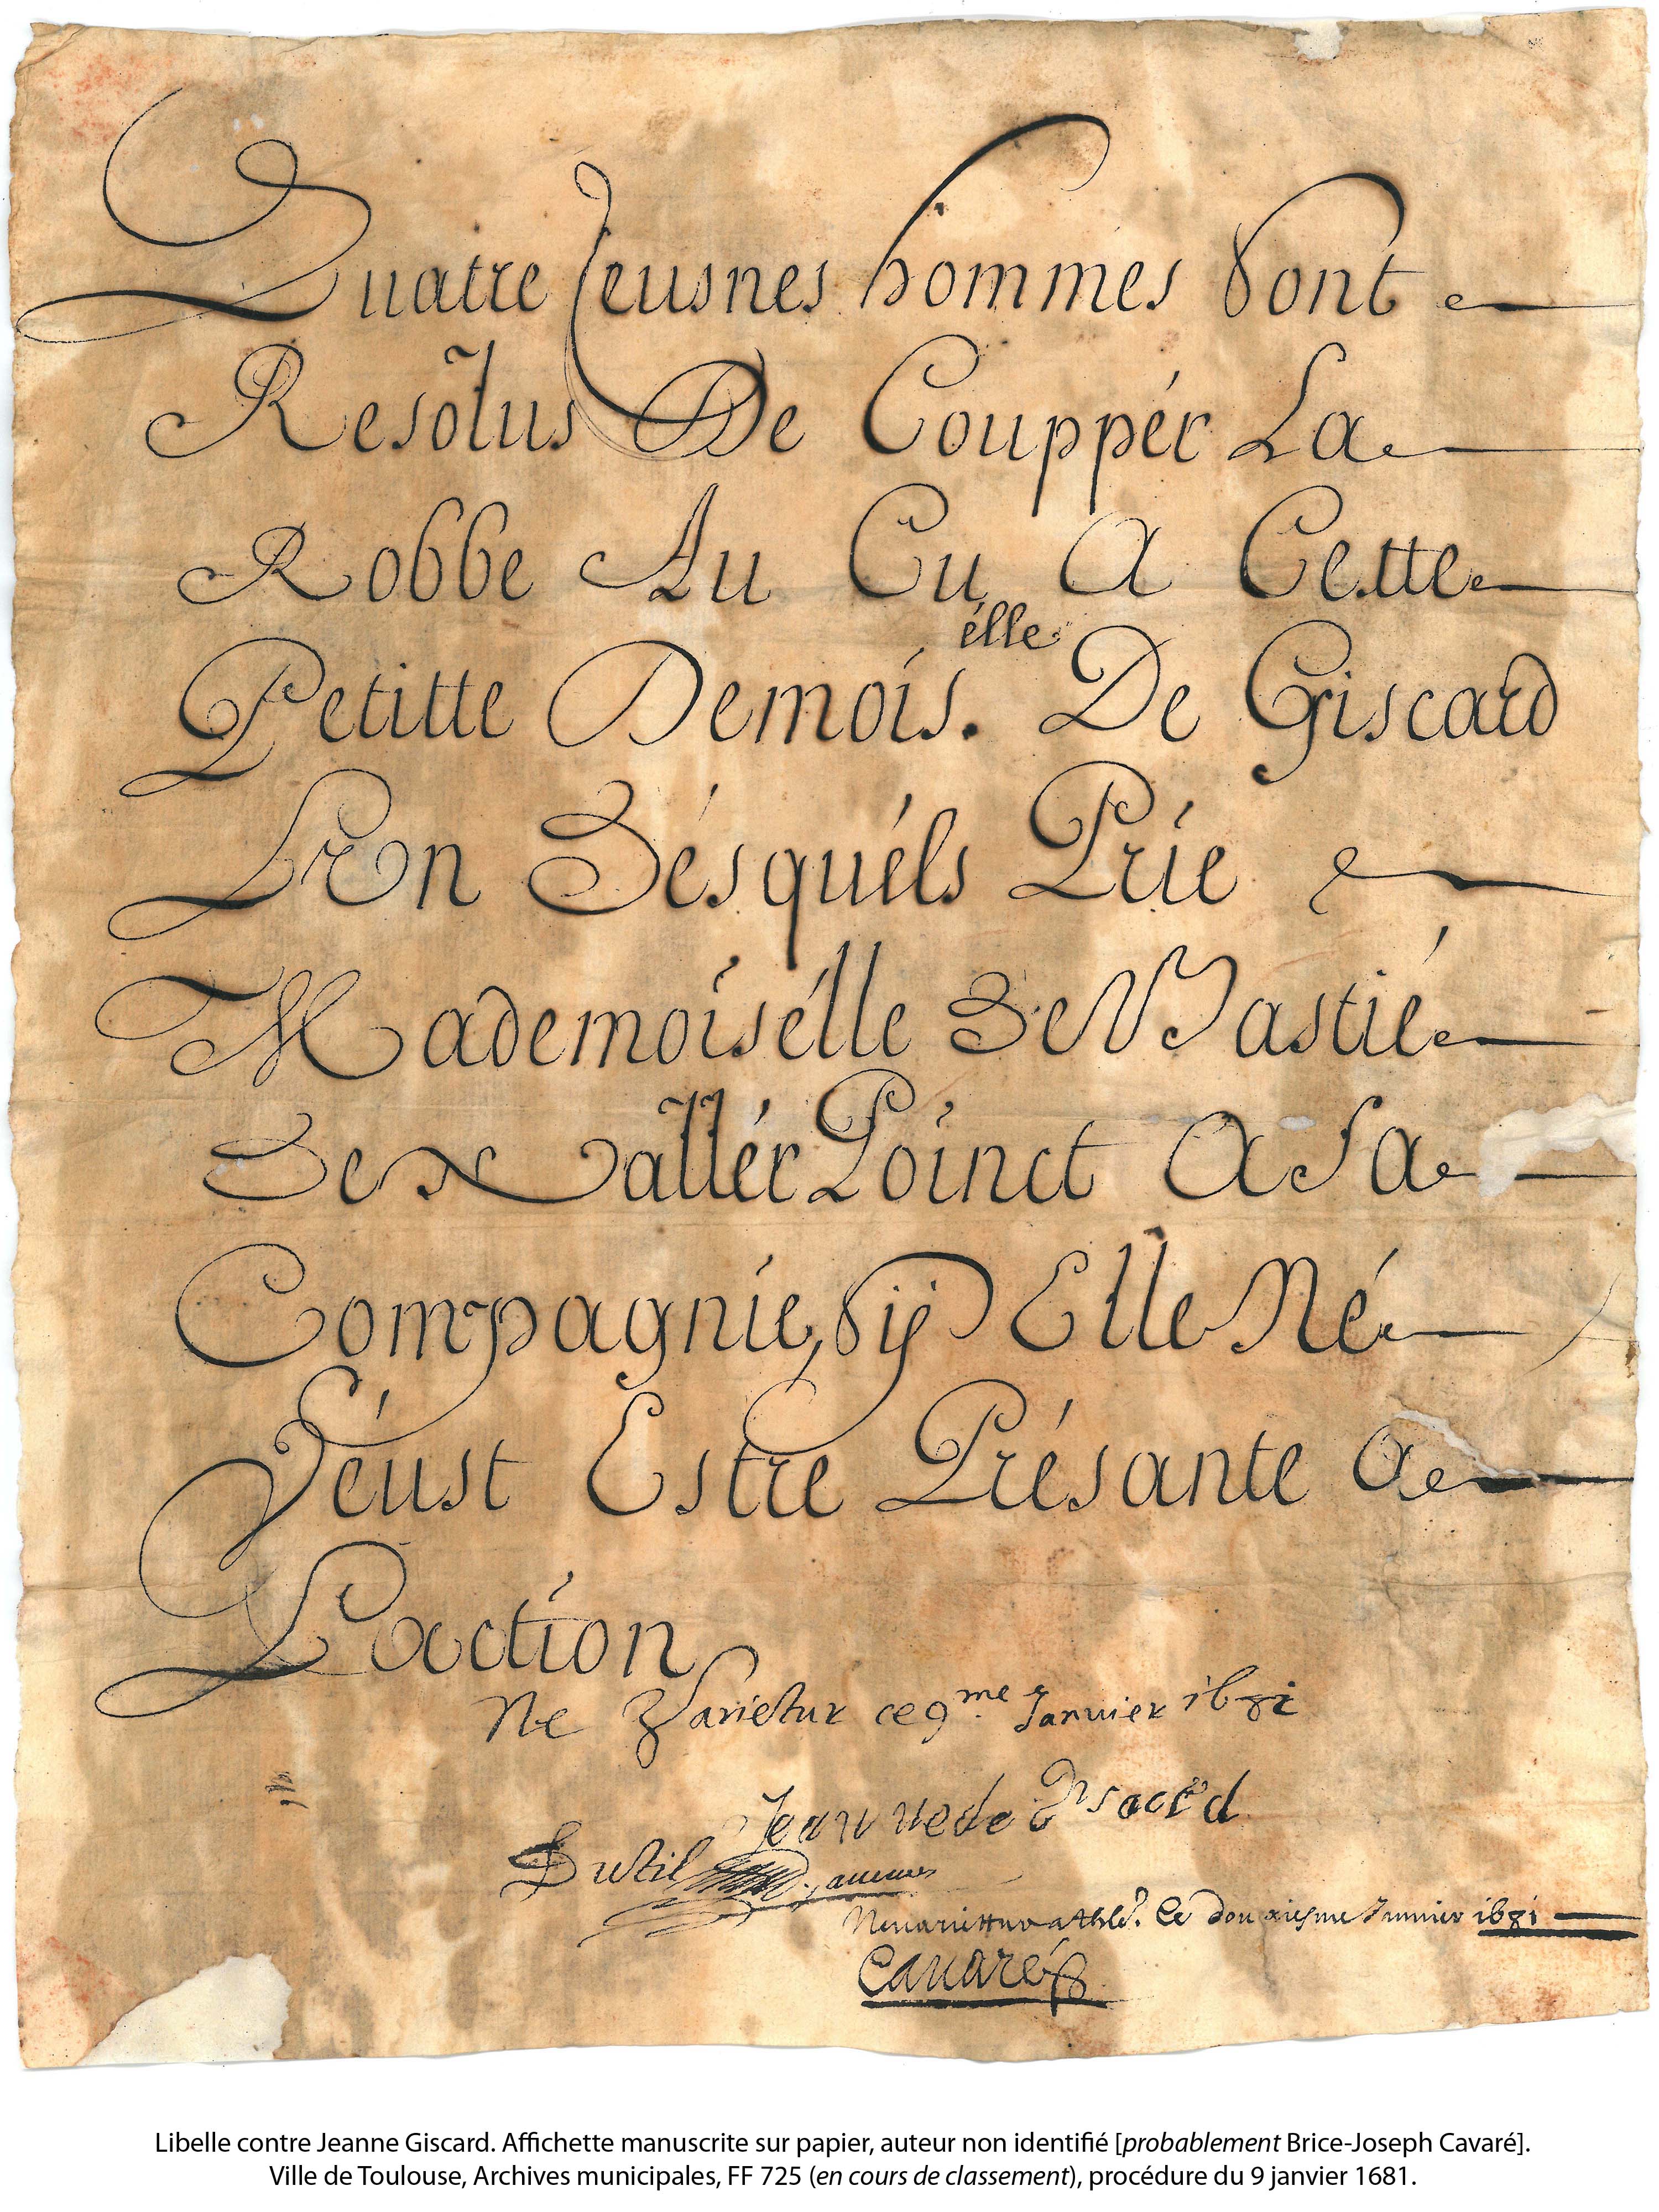 Quatre Jeusnes hommes sont
Resolus De Couppér La
Robbe Au Cu A Cette
Petitte Demois.élle De Giscard
L'On Désquéls Prie
Mademoisélle De Vastié
De N'allér Poinct A Sa
Compagnie, Sy Elle Né
Véust Estre Présante A
L'action
Ne Varietur ce 9.me Janvier 1681
Jeanne de Giscard
Dutil
Ne variettur Le douziesme Janvier 1681
Cavaré
Libelle contre Jeanne Giscard. Affichette manuscrite sur papier, auteur non identifié [probablement Brice-Joseph Cavaré].
Ville de Toulouse, Archives municipales, FF 725 (en cours de classement), procédure du 9 janvier 1681.